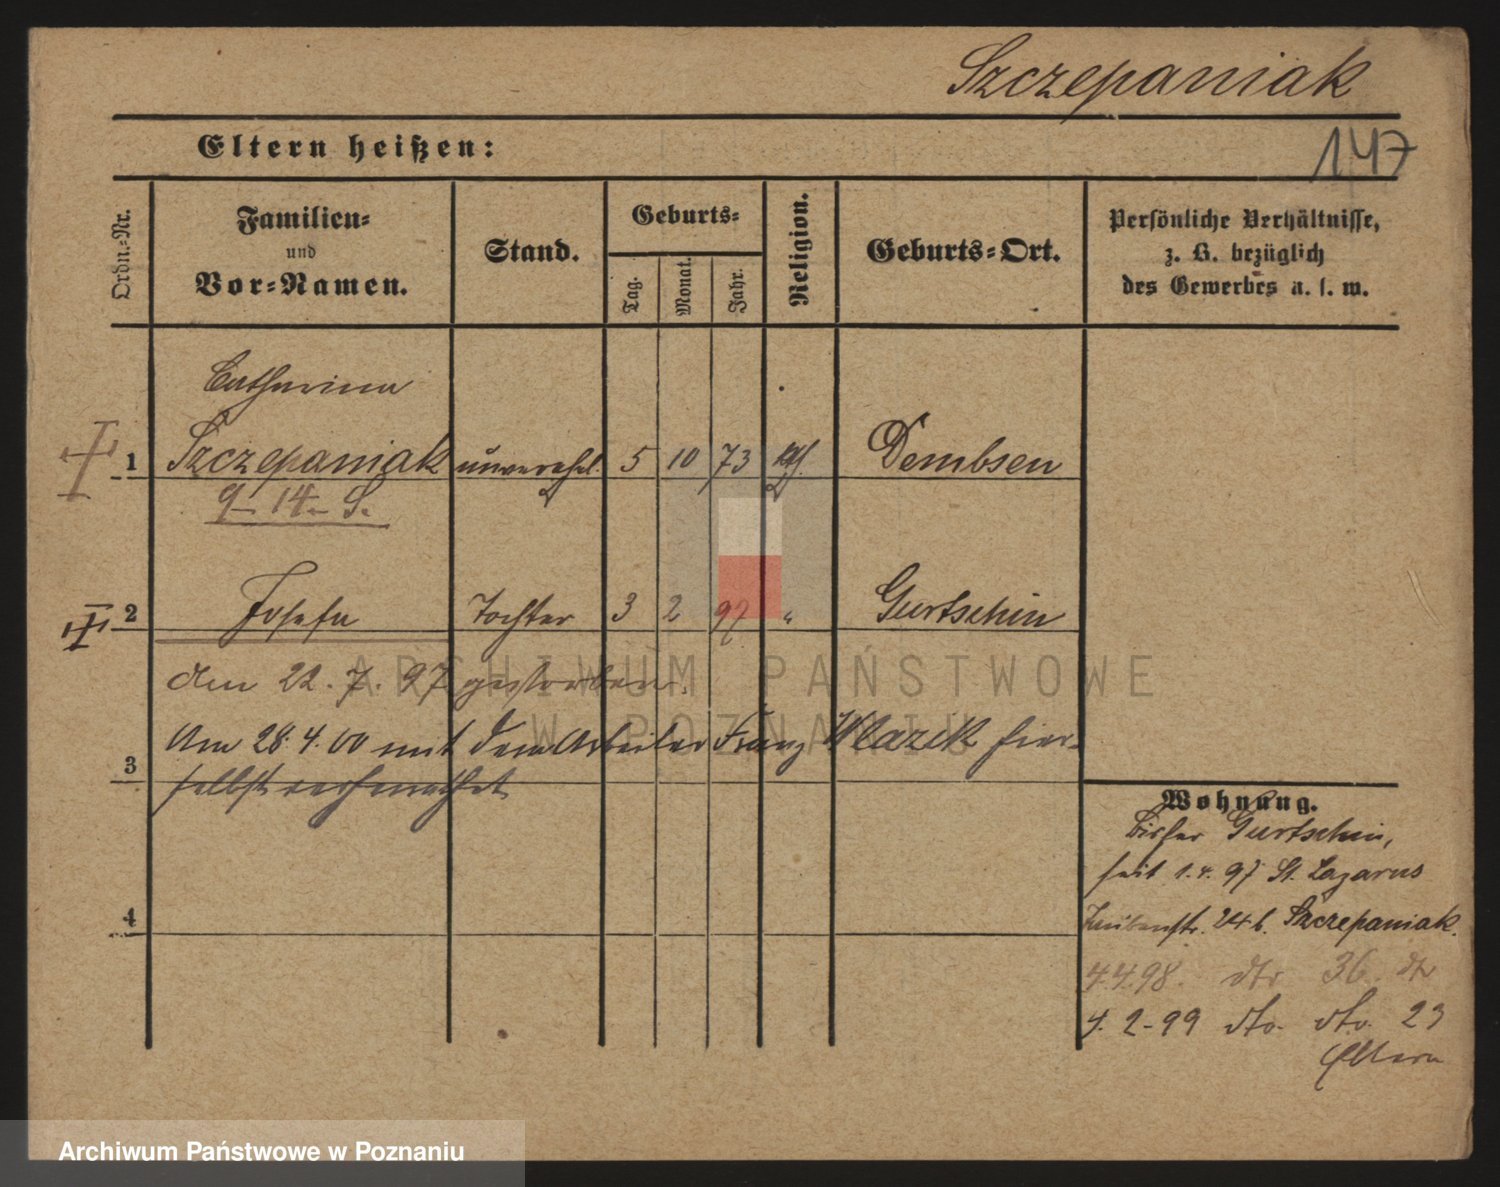 Szczepaniak
147
Eltern heißen:
Ordn.-Nr.
Familien-
und
Vor-Namen.
Stand.
Geburts-
Tag.
Monat.
Jahr.
Religion.
Geburts-Ort.
Persönliche Verhältnisse,
z. B. bezüglich
des Gewerbes u. s. w.
Catharina
1 Szczepaniak unverehel. 5 10 73 kth. Dembsen
9 - 14 - S.
2 Josefa Tochter 3 2 97 " Gurtschin
den 22. 7. 97 gestorben.
Am 28. 4. 00 mit dem Arbeiter Franz Wlazik hier-
3 selbst verheirathet
Wohnung.
bisher Gurtschin,
seit 1. 4. 97 St. Lazarus
24 b. Szczepaniak.
4
4.4.98. dto 36. dto
4. 2 - 99 dto. dto. 23
Eltern
ARCHIWUM PAŃSTWOWE
W POZNANIU
Archiwum Państwowe w Poznaniu